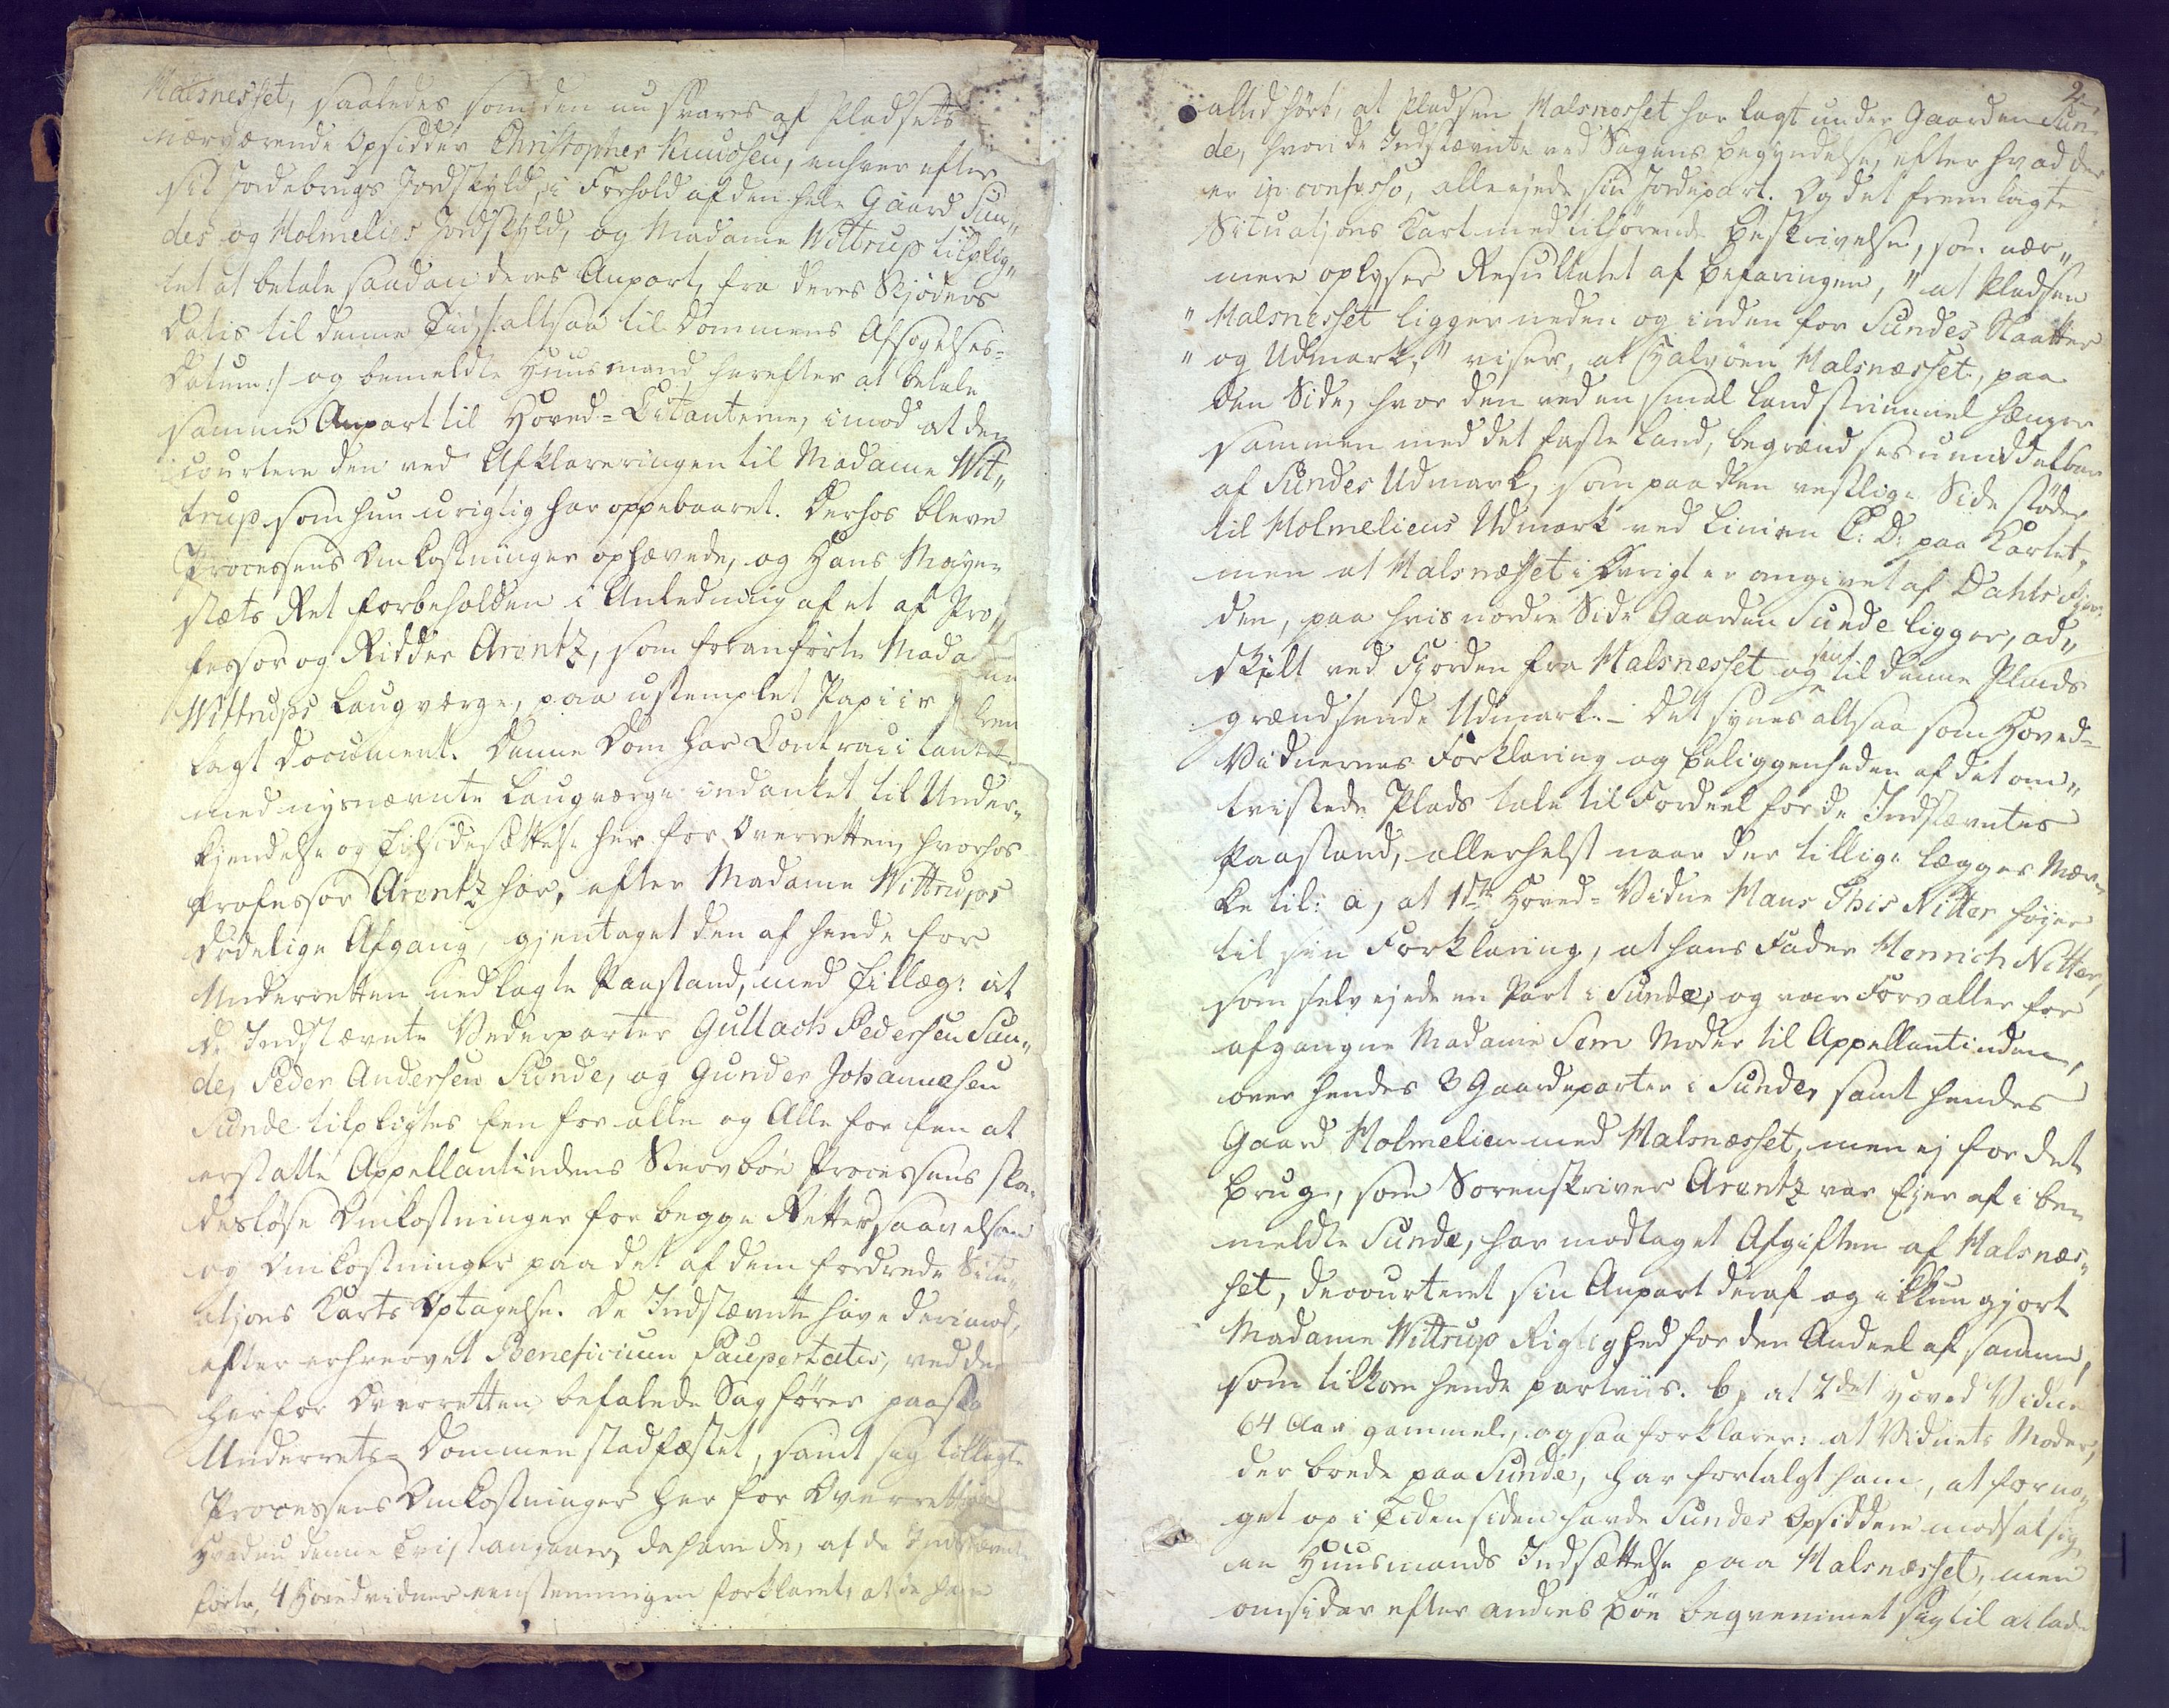 Malsnesset, saaledes som den nu svares af Pladsets
nærværende Opsidder Christopher Knudsen, enhver efter
sit Jordebrugs Jordskyld, i Forhold af den hele Gaard Sun„
des og Holmeliens Jordskyld, og Madame Wittrup tilplig„
tet at betale saadan deres Anpart, fra deres Skjøders
Datis til denne Tid /: altsaa til Dommens Afsigelses-
Datum :/ og bemeldte Huusmand herefter at betale
samme Anpart til Hoved-Citanterne, imod at de
courtere den ved Afklareringen til Madame Wit„
trup som hun urigtig har oppebaaret. Derhos bleve
Processens Omkostninger ophævede, og Hans Maje„
stæts Ret forbeholden i Anledning af et af Pro„
fessor og Ridder Arentz, som foranførte Mada
Wittrups Laugværge, paa ustemplet Papiir
lagt Document. Denne Dom har Contracitant
med nysnævnte Laugværge indanket til Under„
kjendelse og Tilsidesættelse her for Overretten, hvorhos
Professor Arentz har, efter Madame Wittrups
dødelige Afgang, gjentaget den af hende for
Underretten nedlagte Paastand, med Tillæg: at
de Indstævnte Vederparter Gullach Pedersen Sun„
de, Peder Andersen Sunde, og Gunder Johannesen
Sunde tilpligtes Een for alle og Alle for Een at
erstatte Appellantindens Stervboe Processens ska„
desløse Omkostninger for begge Retter, saavelsom
og Omkostninger paa det af dem fordrede Situ„
ations Karts Optagelse. De Indstævnte have derimod,
efter erhvervet Beneficium Paupertatis, ved den
her for Overretten befalede Sagfører paastaa
Underrets-Dommen stadfæstet, samt sig tillagte
Processens Omkostninger her for Overretten
Hvad nu denne Tvist angaaer, da have de, af de Indstævnte
førte, 4 Hovedvidner eenstemmigen forklaret, at de have
2.
altid hørt, at Pladsen Malsnesset har lagt under Gaarden Sun„
de, hvori de Indstævnte ved Sagens Begyndelse, efter hvad der
er in confesso, alle ejede sin Jordepart. Og det fremlagte
Situations Kart med tilhørende Beskrivelse, som nær„
mere oplyser Resultatet af Befaringen, "at Pladsen
"Malsnesset ligger neden og inden for Sundes Slaatter
"og Udmark," viser, at Halvøen Malsnæsset, paa
den Side, hvor den ved en smal Landstrimmel hænger
sammen med det faste Land, begrændses umiddelbar
af Sundes Udmark, som paa den vestlige Side støder
til Holmeliens Udmark ved Linien C: D: paa Kartet,
men at Malsnæsset i Øvrigt er omgivet af Dahlsfjor„
den, paa hvis nordre Side Gaarden Sunde ligger, ad„
skilt ved Fjorden fra Malsnesset og sin til denne Plads
grændsende Udmark. – Det synes altsaa som Hoved-
Vidnernes Forklaring og Beliggenheden af det om„
tvistede Plads tale til Fordeel for de Indstævntes
Paastand, allerhelst naar der tillige lægges Mær„
ke til: a, at 1ste Hoved-Vidne Mans This Nitter føjer
til sin Forklaring, at hans Fader Henrich Nitter,
som selv ejede en Part i Sunde, og var Forvalter for
afgangne Madame Sem Moder til Appellantinden,
over hendes 3 Gaardeparter i Sunde, samt hendes
Gaard Holmelien med Malsnæsset, men ej for det
Brug, som Sorenskriver Arentz var Ejer af i be„
meldte Sunde, har modtaget Afgiften af Malsnæs„
set, decourteret sin Anpart deraf og ikkun gjort
Madame Wittrup Rigtighed for den Andeel af samme,
som tilkom hende partviis. b, at 2det Hoved Vidne
64 Aar gammel, ogsaa forklarer: at Vidnets Moder,
der boede paa Sunde, har fortalgt ham, at for no„
get op i Tiden siden havde Sundes Opsiddere modsat sig
en Huusmands Indsættelse paa Malsnæsset, men
omsider efter andres Bøn beqvemmet sig til at lade